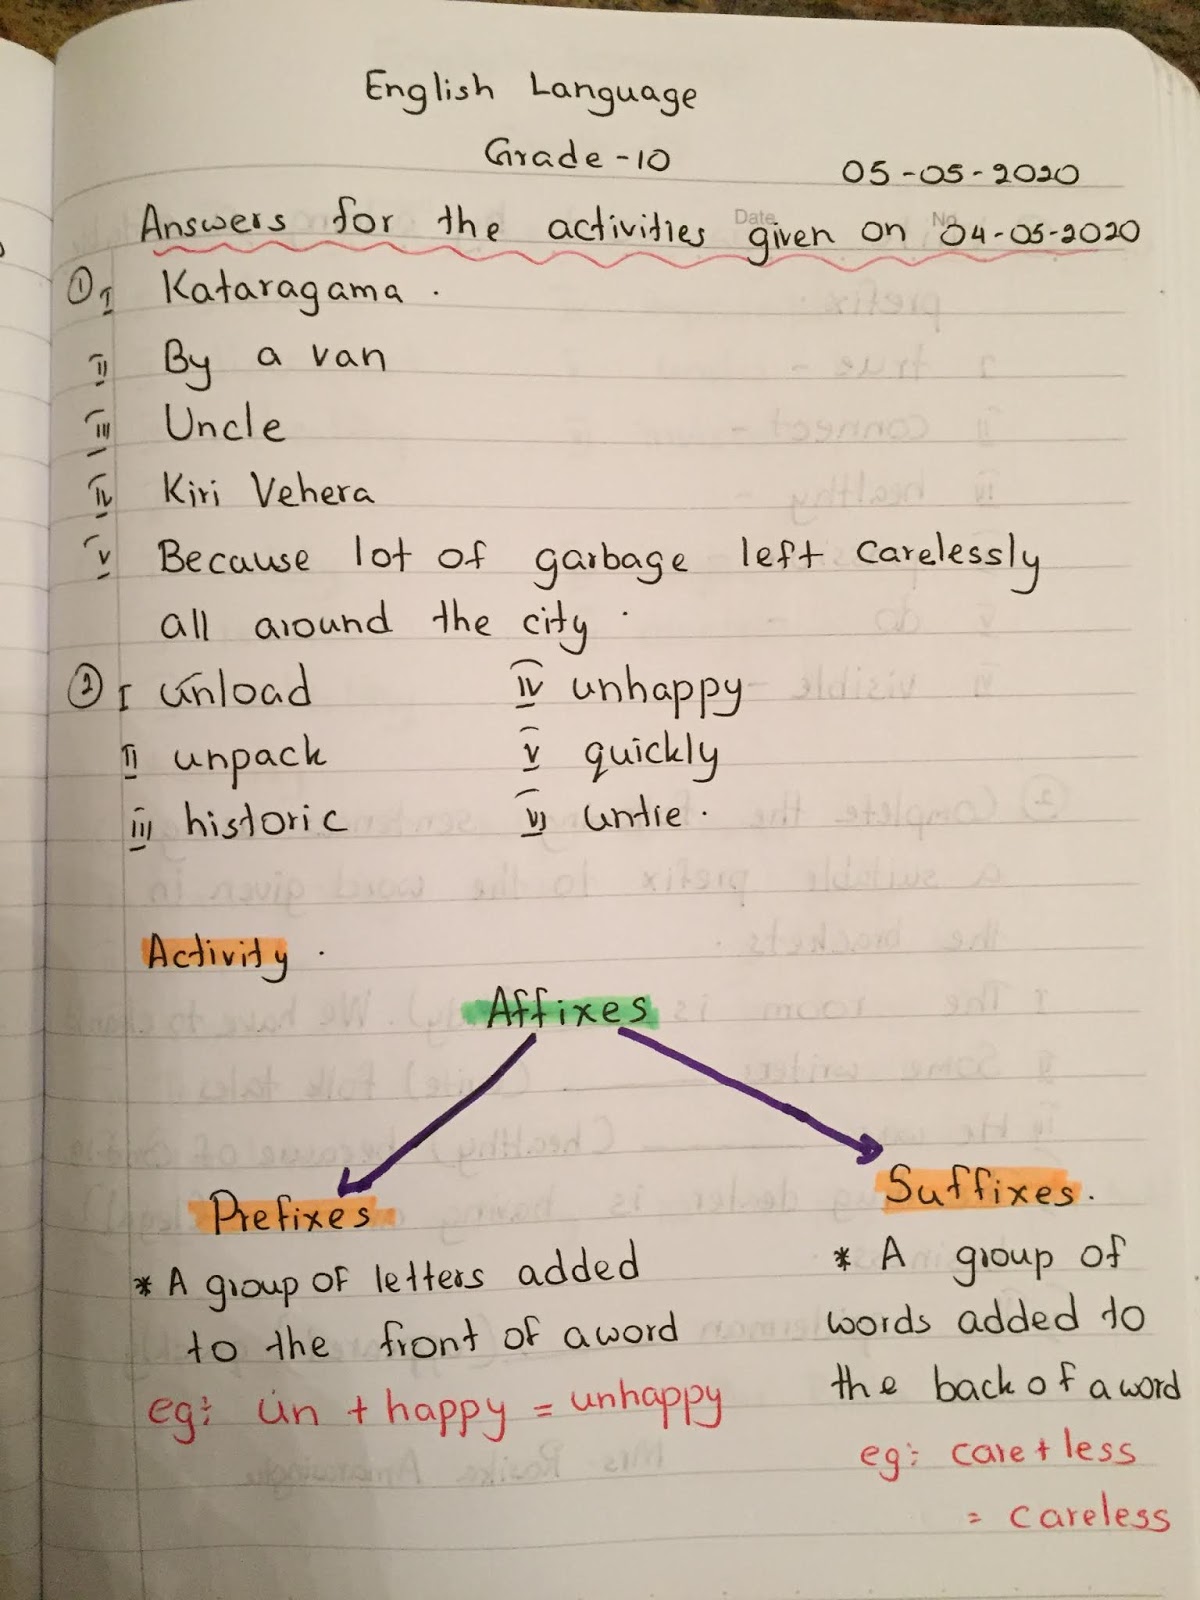 English Language
Grade - 10
05-05-2020
Date No
Answers for the activities given on 04-05-2020
① I Kataragama.
II By a van
III Uncle
IV Kiri Vehera
V Because lot of garbage left carelessly
all around the city.
② I unload IV unhappy
II unpack V quickly
III historic VI untie.
Activity.
Affixes
Prefixes Suffixes.
* A group of letters added
to the front of a word
eg: un + happy = unhappy
* A group of
words added to
the back of a word
eg: care + less
= careless